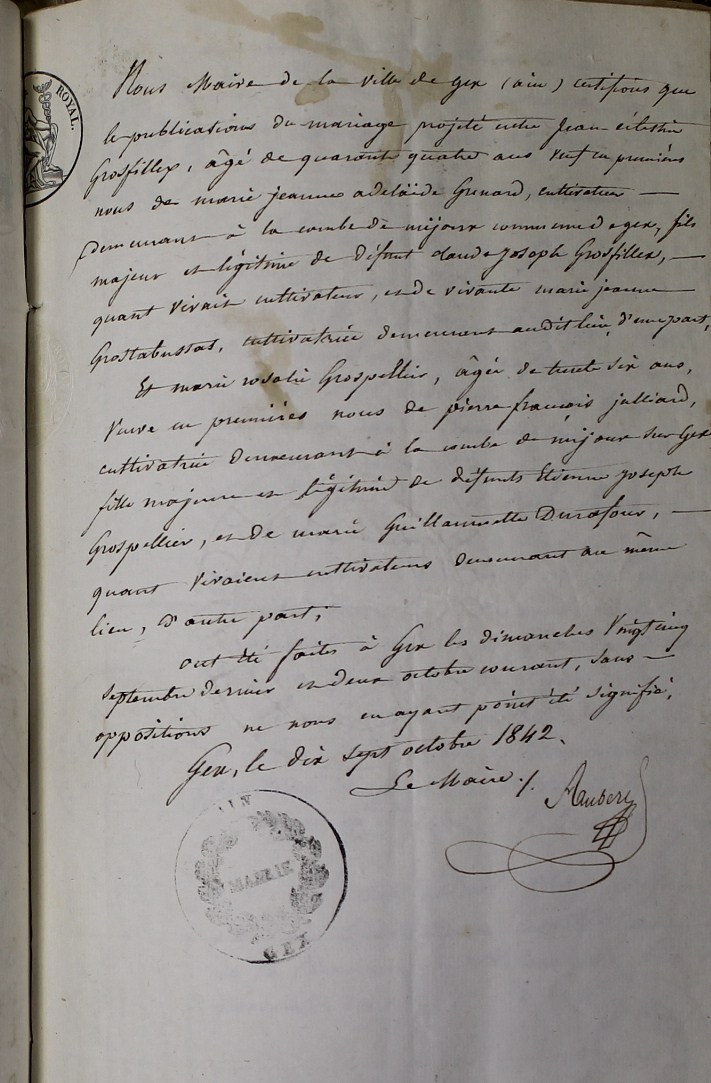 ROYAL.
Nous Maire de la ville de Gex (ain) certifions que
les publications du mariage projeté entre Jean célestin
Grosfillex, âgé de quarante quatre ans veuf en premières
nous de marie jeanne adelaïde Grenard, cultivateur —
demeurant à la combe de mijoux commune de gex, fils
majeur et légitime de défunt claude Joseph Grosfillex, —
quant vivait cultivateur, et de vivante marie jeanne
Grostabussat, cultivatrice demeurant audit lieu, d'une part,
Et marie rosalie Grospellier, âgée de trente six ans,
veuve en premières nous de pierre françois julliard,
cultivatrice demeurant à la combe de mijoux sur Gex
fille majeure et légitime de défunts Etienne Joseph
Grospellier, et de marie Guillaumette Durafour, —
quant vivaient cultivateurs demeurant au même
lieu, d'autre part;
ont été faites à Gex les dimanches vingt cinq
septembre dernier et deux octobre courant, sans —
oppositions ne nous en ayant point été signifié,
Gex, le dix sept octobre 1842.
Le Maire ./. Aubery
AIN
MAIRIE
GEX